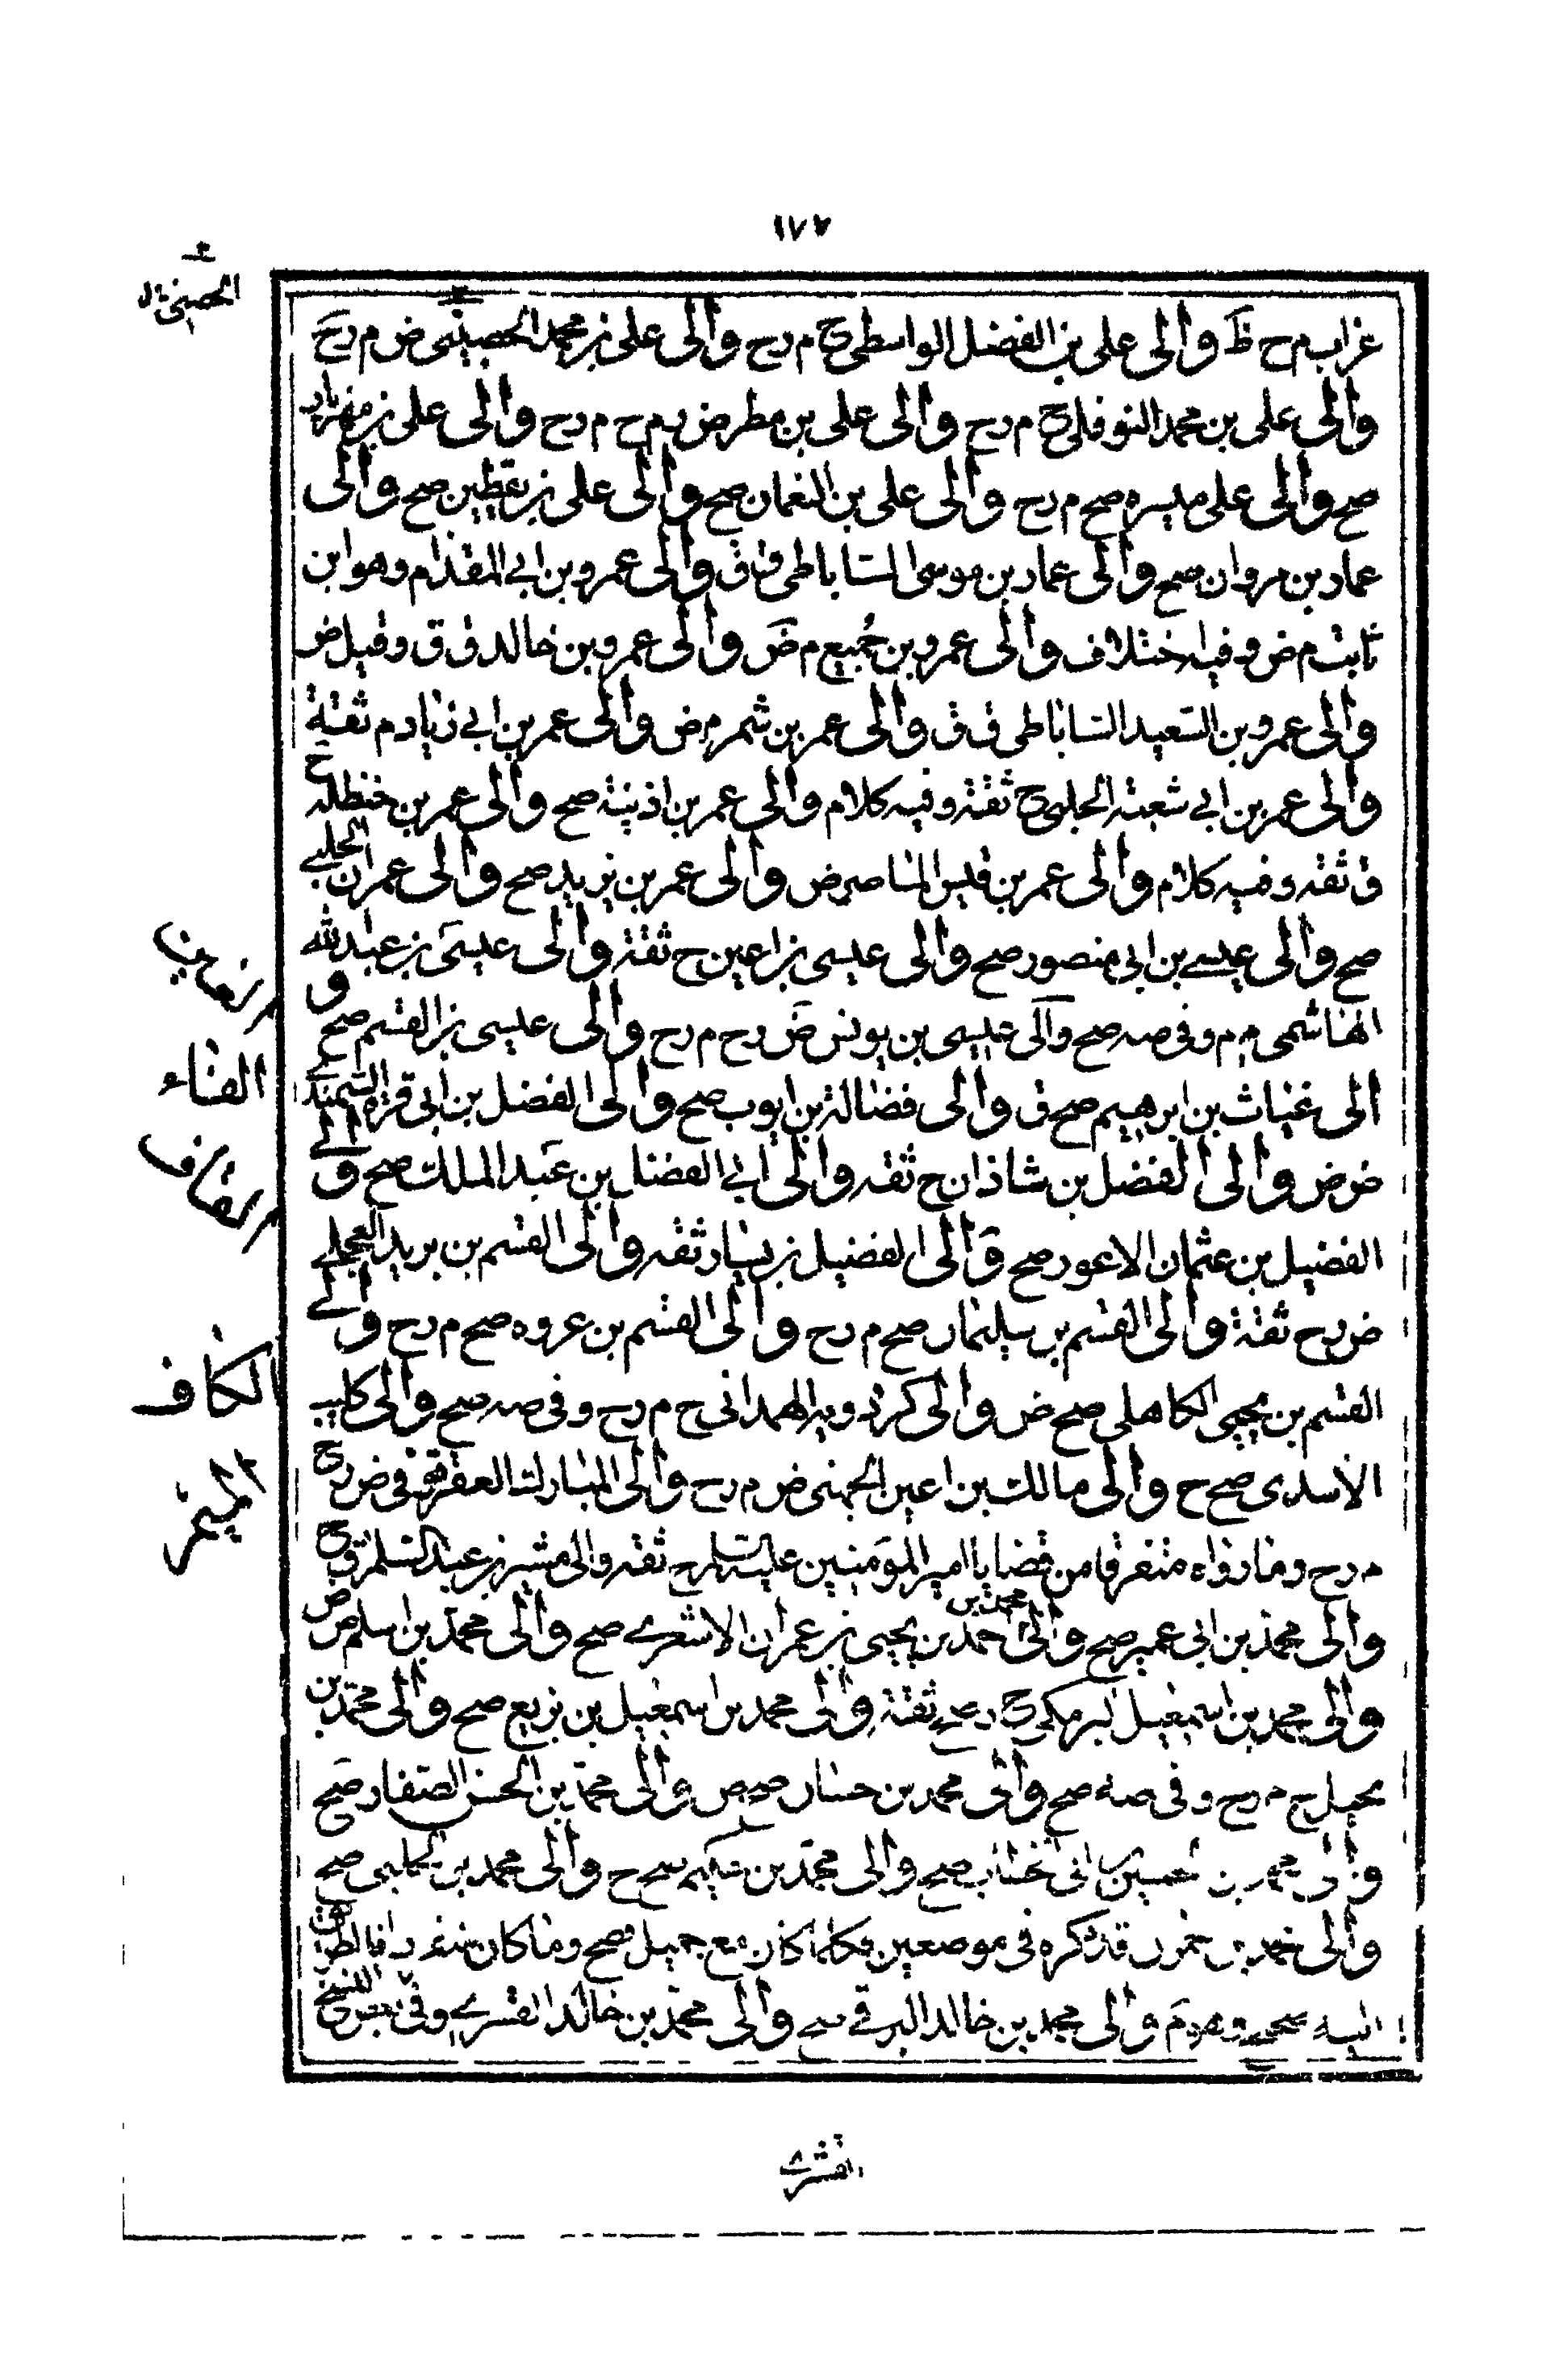 ١٧٢
غراب م ح ظ والى على بن الفضل الواسطى ح م رح والى على بن محمد الحصينى ض م رح
الحصينى ل
والى على بن محمد النوفلى ح م رح والى على بن مطر ض م ح م رح والى على بن مهزيار
صح والى على ميسره صح م رح والى على بن النعمان صح والى على بن يقطين صح والى
عمار بن مروان صح والى عمار بن موسى الساباطى ق ق والى عمرو بن ابى المقدام وهو ابن
ثابت م ض وفيه اختلاف والى عمرو بن جميع م ض والى عمرو بن خالد ق ق وقيل ض
والى عمرو بن السعيد الساباطى ق ق والى عمر بن شمر م ض والى عمر بن ابى زياد م ثقة
والى عمر بن ابى شعبة الحلبى ح ثقة وفيه كلام والى عمر بن اذينة صح والى عمر بن حنظله ح
ق ثقه وفيه كلام والى عمر بن قيس الماصر ض والى عمر بن يزيد صح والى عمران الحلبى
صح والى عيسى بن ابى منصور صح والى عيسى بن اعين ح ثقة والى عيسى بن عبدالله
الهاشمى م م وفى صه صح والى عيسى بن يونس ض رح م رح والى عيسى بن القسم صح و
الى غياث بن ابرهيم صح ق والى فضالة بن ايوب صح والى الفضل بن ابى قره السمندى
الفاء
ض ض والى الفضل بن شاذان ح ثقه والى ابى الفضل بن عبد الملك صح و الى
الفضيل بن عثمان الاعور صح والى الفضيل بن يسار ثقه والى القسم بن بريد العجلى
ض رح ثقة والى القسم بن سليمان صح م رح والى القسم بن عروه صح م رح و الى
القسم بن يحيى الكاهلى صح ض والى كردويه الهمدانى ح م رح وفى صه صح والى كليب
الكاف
الاسدى صح ح والى مالك بن اعين الجهنى ض م رح والى المبارك العقرقوفى ض رح
الميم
م رح وما رواه متفرقا من قضايا امير المؤمنين عليه السلم ح ثقه والى
والى محمد بن ابى عمير صح والى محمد بن احمد بن يحيى بن عمران الاشعرى صح والى محمد بن اسلم ض ض
والى محمد بن اسمعيل البرمكى ح ثقة والى محمد بن اسمعيل بن بزيع صح والى محمد بن
بجيل ح م رح وفى صه صح والى محمد بن حسان والى محمد بن الحسن الصفار صح
والى محمد بن الحسين بن ابى الخطاب صح والى محمد بن حكيم صح ح والى محمد بن الحلبى صح
والى محمد بن حمران قد ذكره فى موضعين فكلما كان مع جميل صح وما كان منفردا فالطريق
اليه صح والى محمد بن خالد البرقى صح والى محمد بن خالد القسرى وفى بعض النسخ
القشرى